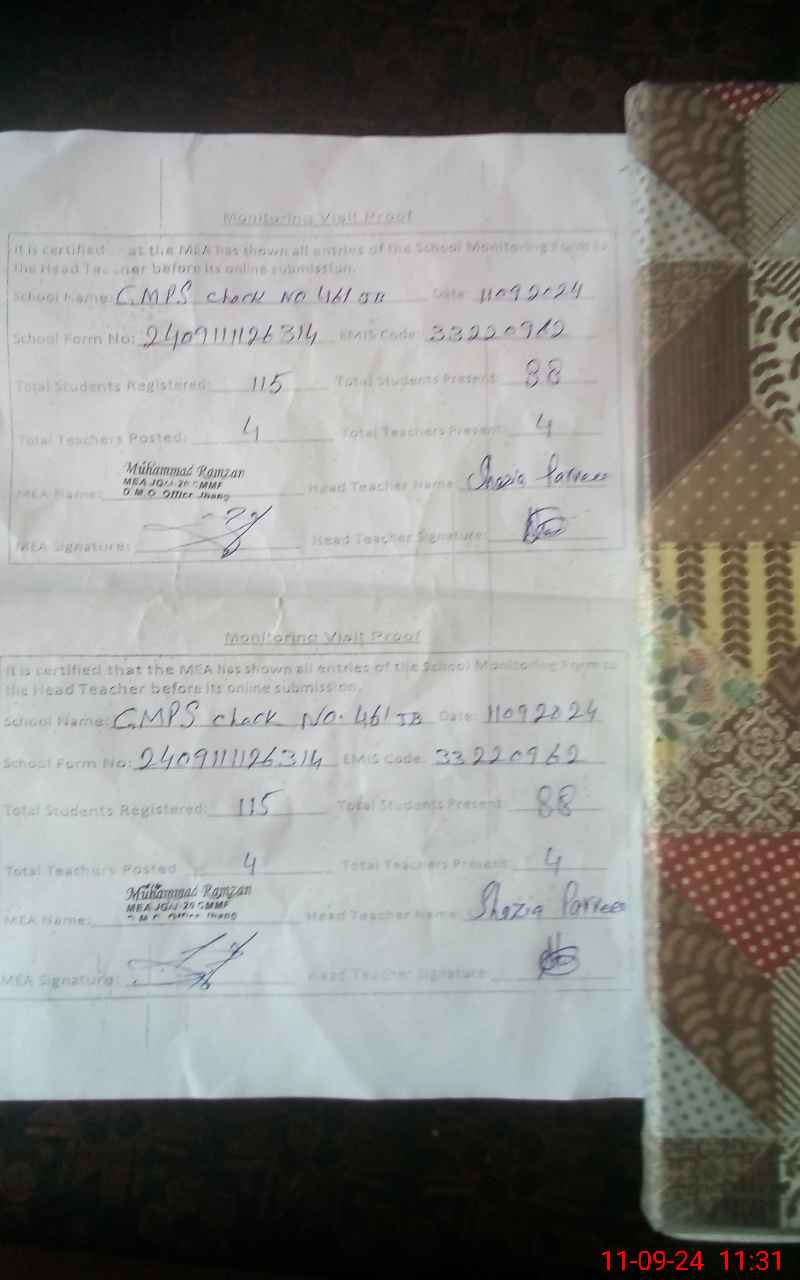 Monitoring Visit Proof
It is certified at the MEA has shown all entries of the School Monitoring Form to
the Head Teacher before its online submission.
School Name: GMPS chack No. 461 JB Date: 11092024
School Form No: 2409111126314 EMIS Code: 33220962
Total Students Registered: 115 Total Students Present: 88
Total Teachers Posted: 4 Total Teachers Present: 4
Muhammad Ramzan
D.M.O Office Jhang
MEA Name: Head Teacher Name: Shazia Parveen
MEA Signature: Head Teacher Signature:
Monitoring Visit Proof
It is certified that the MEA has shown all entries of the School Monitoring Form to
the Head Teacher before its online submission.
School Name: GMPS chack No. 461 JB Date: 11092024
School Form No: 2409111126314 EMIS Code: 33220962
Total Students Registered: 115 Total Students Present: 88
Total Teachers Posted 4 Total Teachers Present: 4
Muhammad Ramzan
D.M.O Office Jhang
MEA Name: Head Teacher Name: Shazia Parveen
MEA Signature: Head Teacher Signature:
11-09-24 11:31